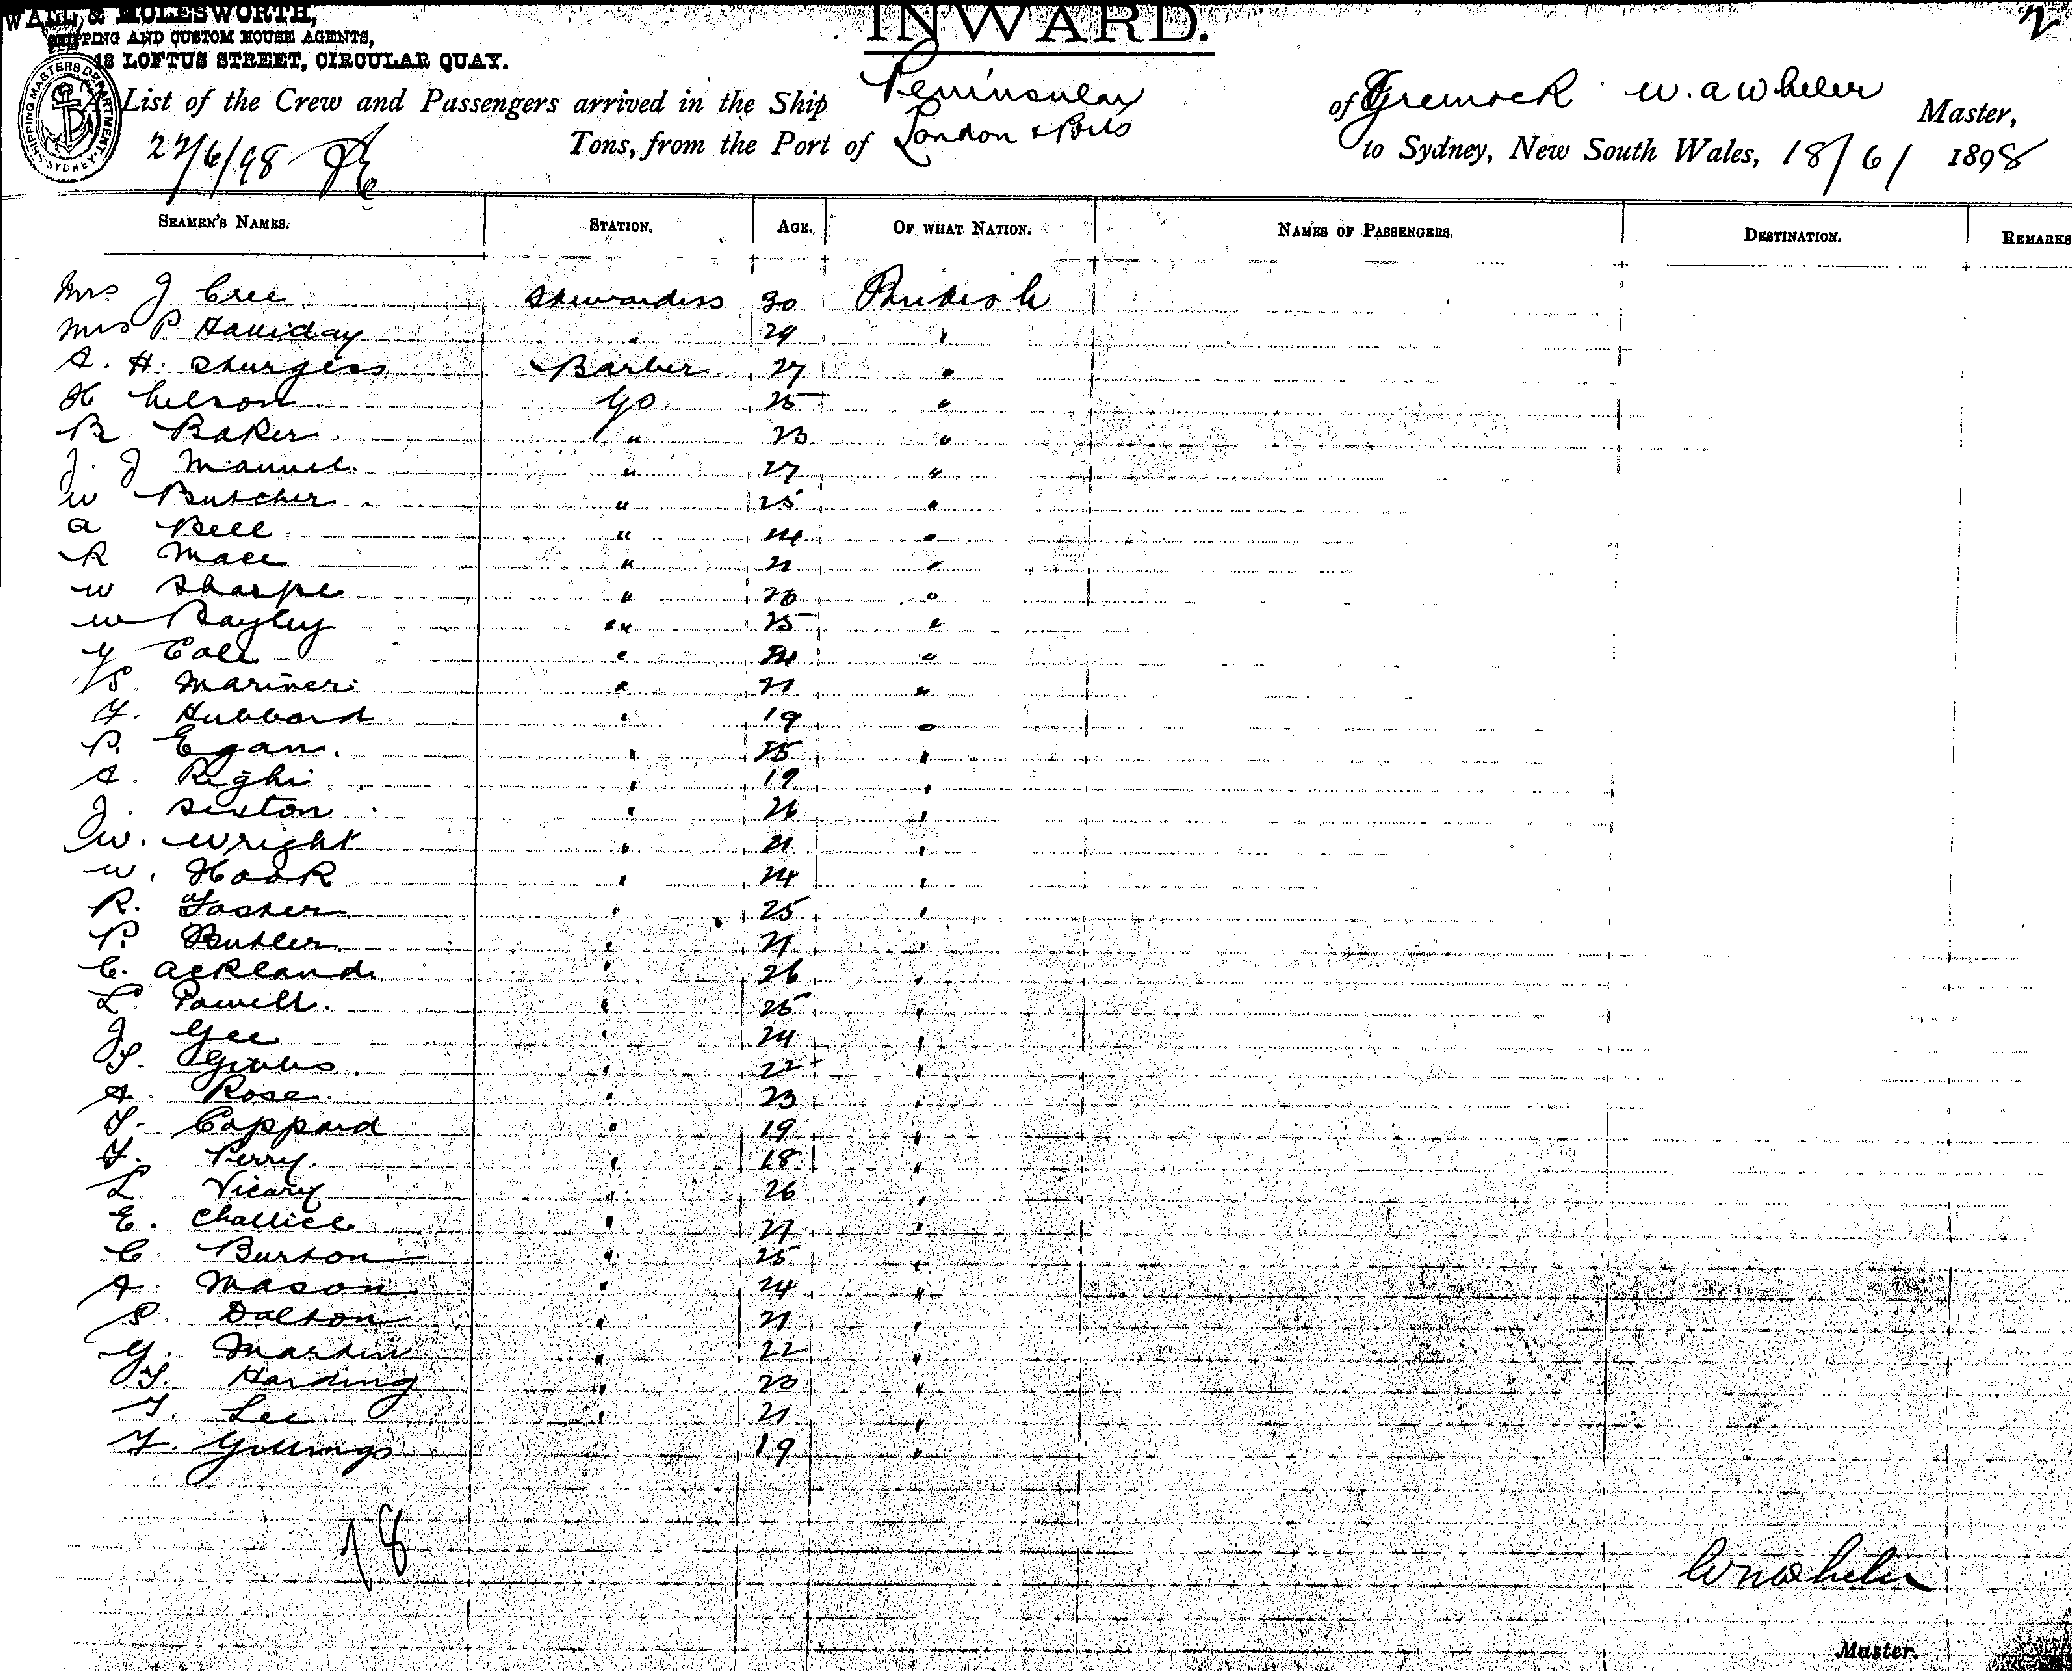 WALL & MOLESWORTH,
SHIPPING AND CUSTOM HOUSE AGENTS,
18 LOFTUS STREET, CIRCULAR QUAY.
INWARD.
2
SHIPPING MASTERS DEPARTMENT SYDNEY
A List of the Crew and Passengers arrived in the Ship Peninsular of Greenock W. A Wheler Master,
22/6/98 Tons, from the Port of London & Ports to Sydney, New South Wales, 18/6/ 1898
SEAMEN'S NAMES. STATION. AGE. OF WHAT NATION. NAMES OF PASSENGERS. DESTINATION. REMARKS
Mrs J Cree Stewardess 30 British
Mrs P. Halliday " 29 "
A. H. Sturgess Barber 27 "
H Nelson GS 25 "
B Baker " 23 "
J. J Mannel " 27 "
W Butcher " 25 "
A Bell " 24 "
R Mace " 21 "
W Sharpe " 26 "
W Bayley " " "
Cole " "
S. Mariner " 21 "
F. Hubbard " 19 "
P. Egan " 25 "
A. Righi " 19 "
J. Sexton " 26 "
W. Wright " 21 "
W. Hook " 24 "
R. Fosher " 25 "
P. Butler " 21 "
C. Ackland " 26 "
L. Powell " 25 "
J Gee " 24 "
S. Gibbs " 22 "
A. Rose " 23 "
T. Coppard " 19 "
F. Perry " 18 "
L Vicary " 26 "
E. Challice " 21 "
C. Burton " 25 "
A. Mason " 24 "
S. Dalton " 21 "
G. Martin " 22 "
T. Harding " 20 "
T. Lee " 21 "
F. Gollings 19 "
78
W A Wheler
Master.